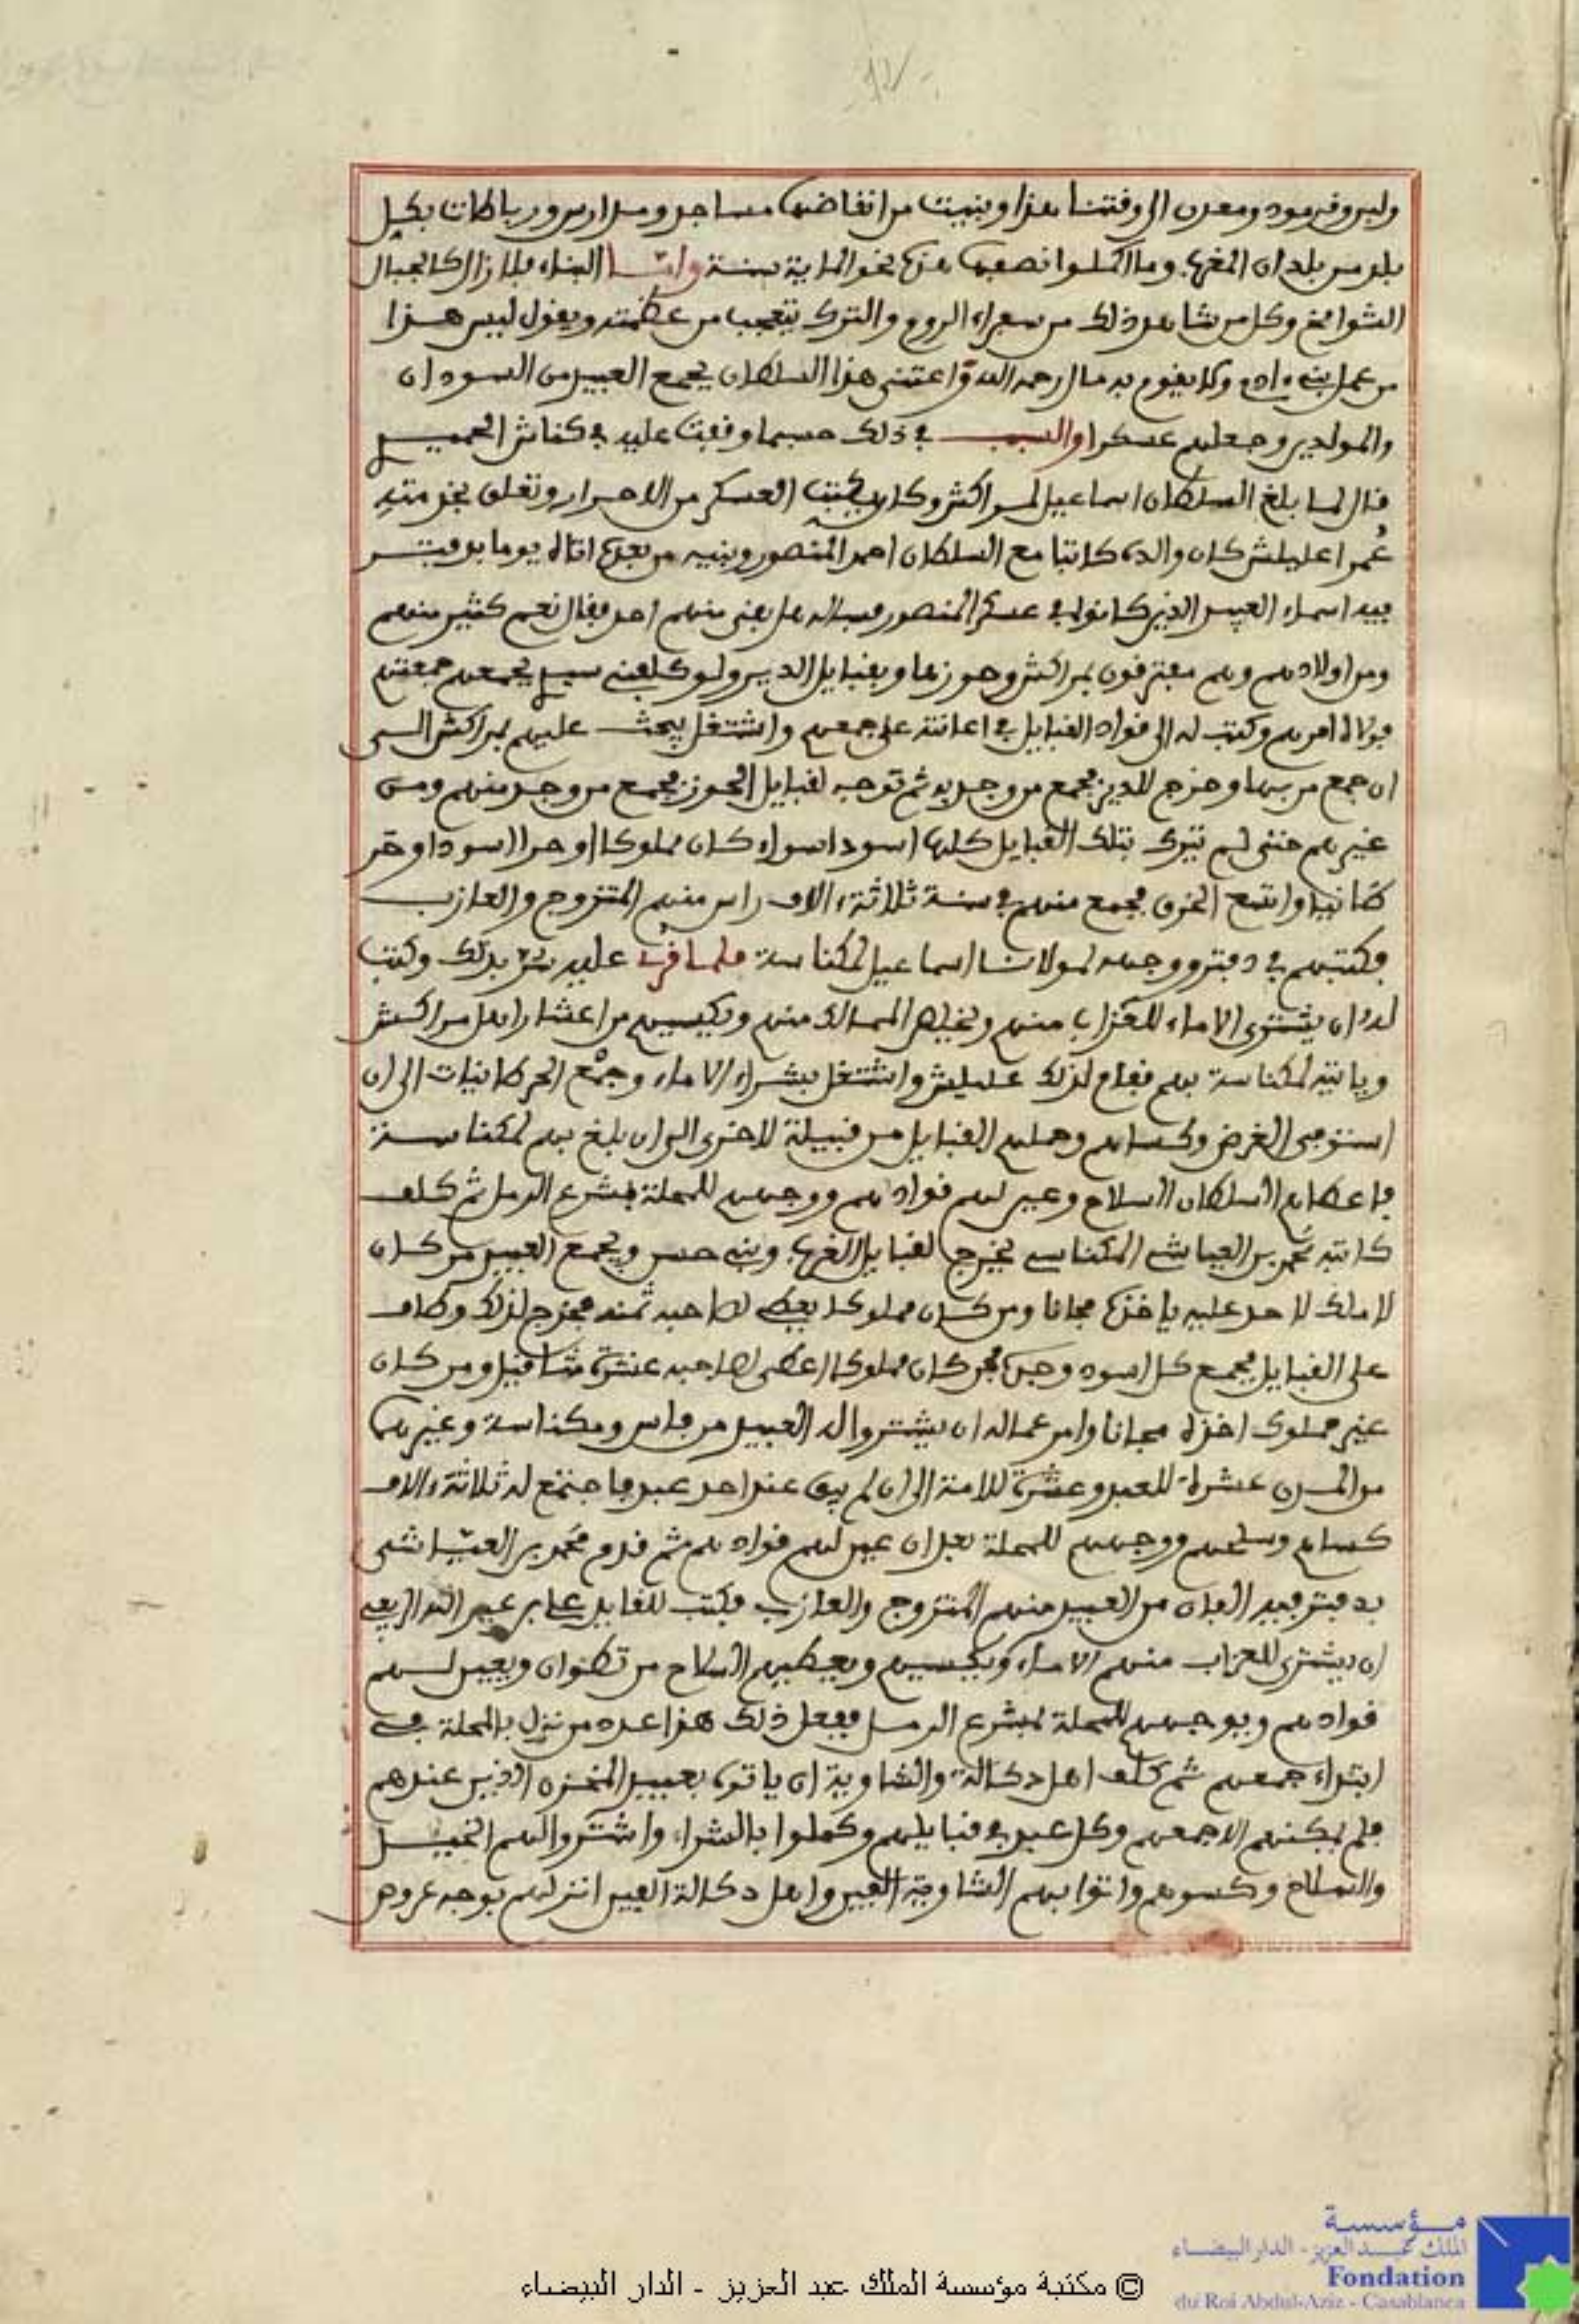 وليدوفرمود ومعدن الى وقتنا هذا وبنيت من انقاضها مساجد ومدارس ورباطات بكل
بلد من بلدان المغرب وما اكملوا نصفها هذه نحو الماية سنة واما البناء فلا زال كالجبال
الشوامخ وكل من شاهد ذلك من سفراء الروم والترك يتعجب من عظمته ويقول ليس هذا
من عمل بني ءادم ولا يقوم به مال رحمه الله واعتنى هذا السلطان بجمع العبيد من السودان
والمولدين وجعلهم عسكرا والسبب في ذلك حسبما وقفت عليه في كناش الحميـ
قال لما بلغ السلطان اسماعيل لمراكش وكان يكتب العسكر من الاحرار وتعلق بخدمته
عُمر اعليلش كان والده كاتبا مع السلطان احمد المنصور وبنيه من بعده اتاه يوما بدفتـر
فيه اسماء العبيد الذين كانوا في عسكر المنصور فساله هل بقى منهم احد فقال نعم كثير منهم
ومن اولادهم وهم مفترقون بمراكش وحوزها وبقبايل الدير ولو كلفني سيدي بجمعهم جمعتهم
فولاه امرهم وكتب له الى قواد القبايل في اعانته على جمعهم واشتغل يبحث عليهم بمراكش الـى
ان جمع من بها وخرج للدير فجمع من وجد به ثم توجه لقبايل الحوز فجمع من وجد منهم ومن
غيرهم حتى لم يترك بتلك القبايل كلها اسود اسواء كان مملوكا او حرا اسود او حر
طانيا واتسع الخرق فجمع منهم في سنة ثلاثة ءالاف راس منهم المتزوج والعازب
فكتبهم في دفتر ووجهه لمولانا اسماعيل لمكناسة فلما قرئ عليه سر بذلك وكتب
له ان يشترى الاماء للعزاب منهم ويخلص المماليك منهم ويكسيهم من اعشار اهل مراكش
وياتيه لمكناسة بهم فقام لذلك عليلش واشتغل بشراء الاماء وجمع الحرطانيات الى ان
استوفى الغرض وكساهم وحملهم القبايل من قبيلة لاخرى الى ان بلغ بهم لمكناسـة
فاعطاهم السلطان السلاح وعين لهم قوادهم ووجههم للمحلة بمشرع الرمل ثم كلف
كاتبه محمد بن العياشي المكناسي يخرج لقبايل الغرب وبني حسن ويجمع العبيد من كان
لا ملك لاحد عليه ياخذه مجانا ومن كان مملوكا يعطي لصاحبه ثمنه فخرج لذلك وطاف
على القبايل فجمع كل اسود وجده فمن كان مملوكا اعطى لصاحبه عشرة مثاقيل ومن كان
غير مملوك اخذه مجانا وامر عماله ان يشتروا له العبيد من فاس ومكناسة وغيرهما
من المدن عشرة للعبد وعشرة للامة الى ان لم يبق عند احد عبد فاجتمع له ثلاثة ءالاف
كساهم وسلحهم ووجههم للمحلة بعد ان عين لهم قوادهم ثم قدم محمد بن العياشى
بدفتر فيه الفان من العبيد منهم المتزوج والعازب فكتب للقايد علي بن عبد الله الريفي
ان يشترى للعزاب منهم الاماء ويكسيهم ويعطيهم السلاح من تطوان ويعين لـهم
قوادهم ويوجههم للمحلة بمشرع الرمـل ففعل ذلك هذا عدد من نزل بالمحلة في
ابتداء جمعهم ثم كلف اهل دكالة والشاوية ان ياتوه بعبيد المخزن الذين عندهم
فلم يمكنهم الا جمعهم وكل عبد في قبايلهم وكملوا بالشراء واشتروا لهم الخيـل
والسلاح وكسوهم واتوا بهم الشاوية الفين واهل دكالة الفين انزلهم بوجه عروض
مؤسسة
الملك عبد العزيز - الدار البيضاء
Fondation
du Roi Abdul-Aziz - Casablanca
© مكتبة مؤسسة الملك عبد العزيز - الدار البيضاء